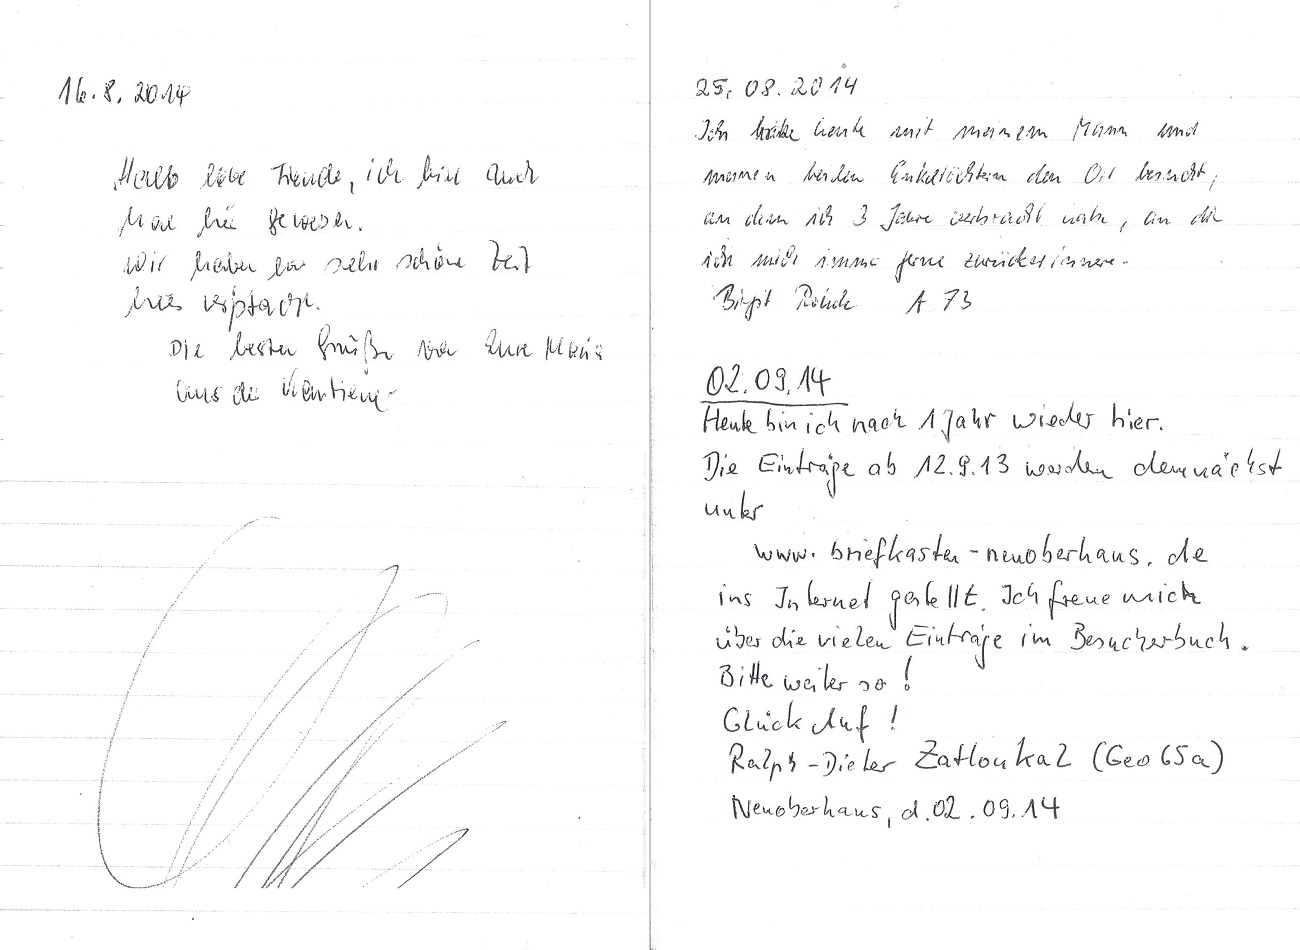 16.8.2014
Hallo liebe Freunde, ich bin auch
Mal hie gewesen.
Wir haben ein sehr schöne Zeit
hier
Die besten Grüße von Eure Maria
aus de
25. 08. 2014
Ich habe heute mit meinem Mann und
meinen beiden Enkeltöchtern den Ort besucht,
an dem ich 3 Jahre verbracht habe, an die
ich mich immer gerne zurückerinnere.
Birgit A 73
02.09.14
Heute bin ich nach 1 Jahr wieder hier.
Die Einträge ab 12.9.13 werden demnächst
unter
www.briefkasten-neuoberhaus.de
ins Internet gestellt. Ich freue mich
über die vielen Einträge im Besucherbuch.
Bitte weiter so!
Glück Auf!
Ralph-Dieter Zatloukal (Geo65a)
Neuoberhaus, d. 02.09.14